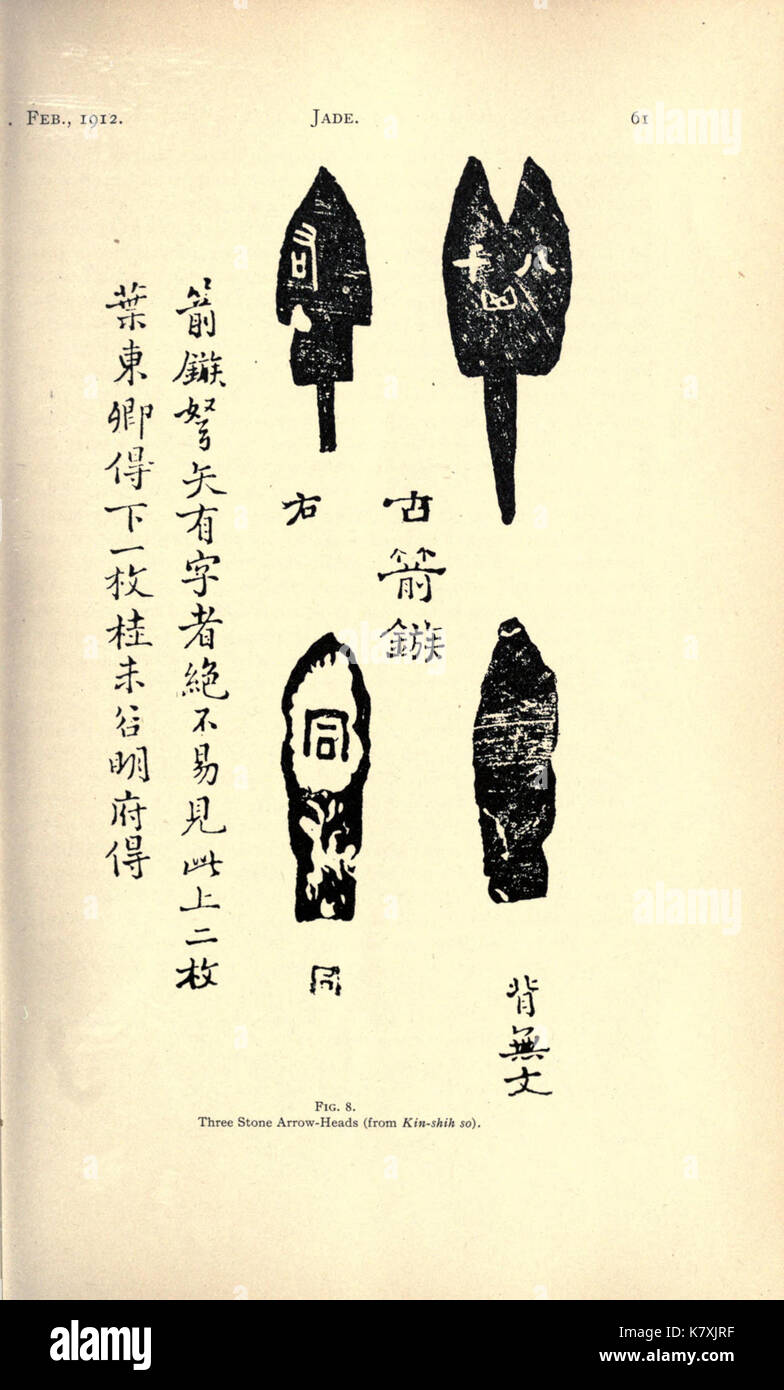 FEB., 1912. JADE. 61
八
十四
古箭鏃
右
背無文
同
箭鏃弩矢有字者絶不易見此上二枚
葉東卿得下一枚桂未谷明府得
FIG. 8.
Three Stone Arrow-Heads (from Kin-shih so).
alamy
alamy stock photo
K7XJRF
www.alamy.com